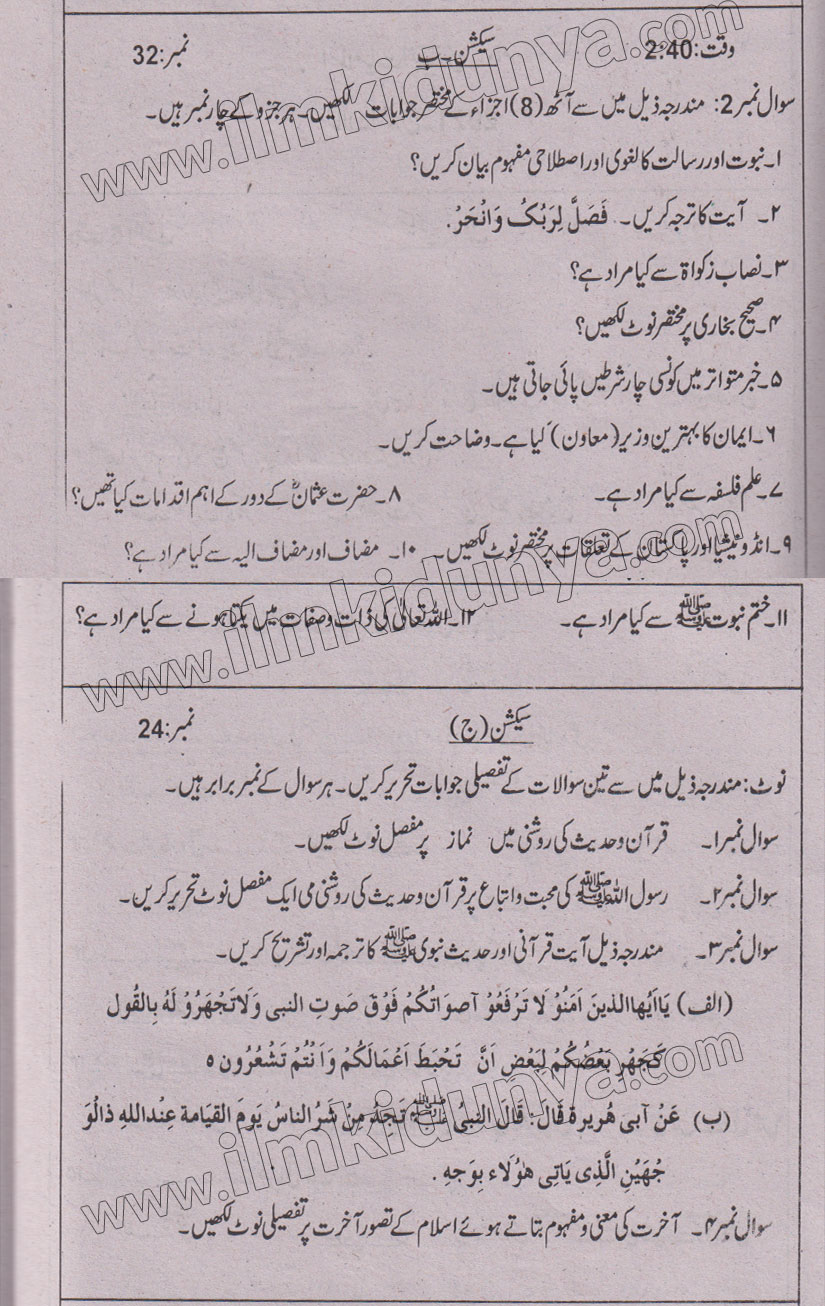 وقت:2:40 سیکشن۔ب نمبر:32
سوال نمبر2: مندرجہ ذیل میں سے آٹھ (8) اجزاء کے مختصر جوابات لکھیں۔ ہر جزو کے چار نمبر ہیں۔
۱۔ نبوت اور رسالت کا لغوی اور اصطلاحی مفہوم بیان کریں؟
۲۔ آیت کا ترجہ کریں۔ فَصَلَّ لِرَبُکُ وَانْحَرْ.
۳۔ نصاب زکواۃ سے کیا مراد ہے؟
۴۔ صحیح بخاری پر مختصر نوٹ لکھیں؟
۵۔ خبر متواتر میں کونسی چار شرطیں پائی جاتی ہیں۔
۶۔ ایمان کا بہترین وزیر (معاون) کیا ہے۔ وضاحت کریں۔
۷۔ علم فلسفہ سے کیا مراد ہے۔ ۸۔ حضرت عثمانؓ کے دور کے اہم اقدامات کیا تھیں؟
۹۔ انڈونیشیا اور پاکستان کے تعلقات پر مختصر نوٹ لکھیں۔ ۱۰۔ مضاف اور مضاف الیہ سے کیا مراد ہے؟
۱۱۔ ختم نبوت ﷺ سے کیا مراد ہے۔ ۱۲۔ اللہ تعالیٰ کی ذات و صفات میں یکتا ہونے سے کیا مراد ہے؟
سیکشن (ج) نمبر:24
نوٹ: مندرجہ ذیل میں سے تین سوالات کے تفصیلی جوابات تحریر کریں۔ ہر سوال کے نمبر برابر ہیں۔
سوال نمبر۱۔ قرآن وحدیث کی روشنی میں نماز پر مفصل نوٹ لکھیں۔
سوال نمبر۲۔ رسول اللہ ﷺ کی محبت و اتباع پر قرآن وحدیث کی روشنی می ایک مفصل نوٹ تحریر کریں۔
سوال نمبر۳۔ مندرجہ ذیل آیت قرآنی اور حدیث نبوی ﷺ کا ترجمہ اور تشریح کریں۔
(الف) یٰااَیُّھاالذینَ اٰمَنُوْ لَا تَرْفَعُوْ آصوَاتُکُمْ فَوْقَ صَوتِ النبی وَلَاتَجْھَرُوْ لَهٗ بِالقُول
کَجَھْرِ بَعْضُکُمْ لِبَعْضِ اَنَّ تَحْبَطَ اَعْمَالَکُمْ وَاَنْتُمْ تَشْعُرُون ٥
(ب) عَنْ آبی ھُریرة قَالَ: قَالَ النبیُ ﷺ تَجِدُ مِنْ شَرُالناسُ یَومَ القیَامة عِنْداللهِ ذالْوَ
جُھَیْنِ الَّذِی یَاتِی ھٰوُلَاء بِوَجهِ .
سوال نمبر۴۔ آخرت کی معنی و مفہوم بتاتے ہوئے اسلام کے تصور آخرت پر تفصیلی نوٹ لکھیں۔
www.ilmkidunya.com
www.ilmkidunya.com
www.ilmkidunya.com